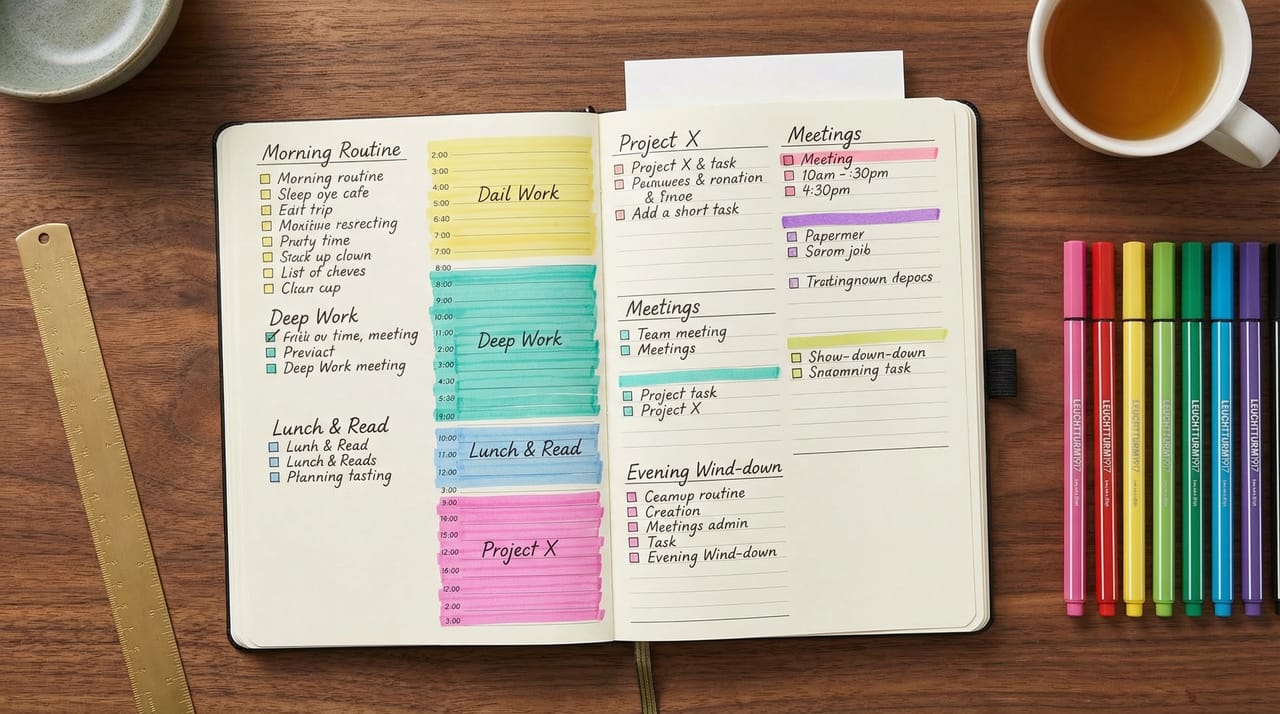 Morning Routine
Morning routine
Sleep oye cafe
Edit trip
resrecting
time
up clown
List of cheves
Clean cup
Deep Work
time, meeting
Previact
Deep Work meeting
Lunch & Read
Lunh & Read
Lunch & Reads
Planning tasting
2:00
3:00
4:00
5:00
6:40
7:00
7:00
Dail Work
8:00
8:00
9:00
10:00
11:00
2:00
3:00
4:30
5:30
9:00
Deep Work
10:00
11:00
12:00
Lunch & Read
3:00
9:00
15:00
12:00
16:00
12:00
2:00
3:00
Project X
Project X
Project X & task
& ronation
&
Add a short task
Meetings
Team meeting
Meetings
Project task
Project X
Evening Wind-down
Ceamup routine
Creation
Meetings admin
Task
Evening Wind-down
Meetings
Meeting
10am - :30pm
4:30pm
Papermer
Sorom joib
Show-down-down
task
LEUCHTTURM1917
LEUCHTTURM1917
LEUCHTTURM1917
LEUCHTTURM1917
LEUCHTTURM1917
LEUCHTTURM1917
LEUCHTTURM1917